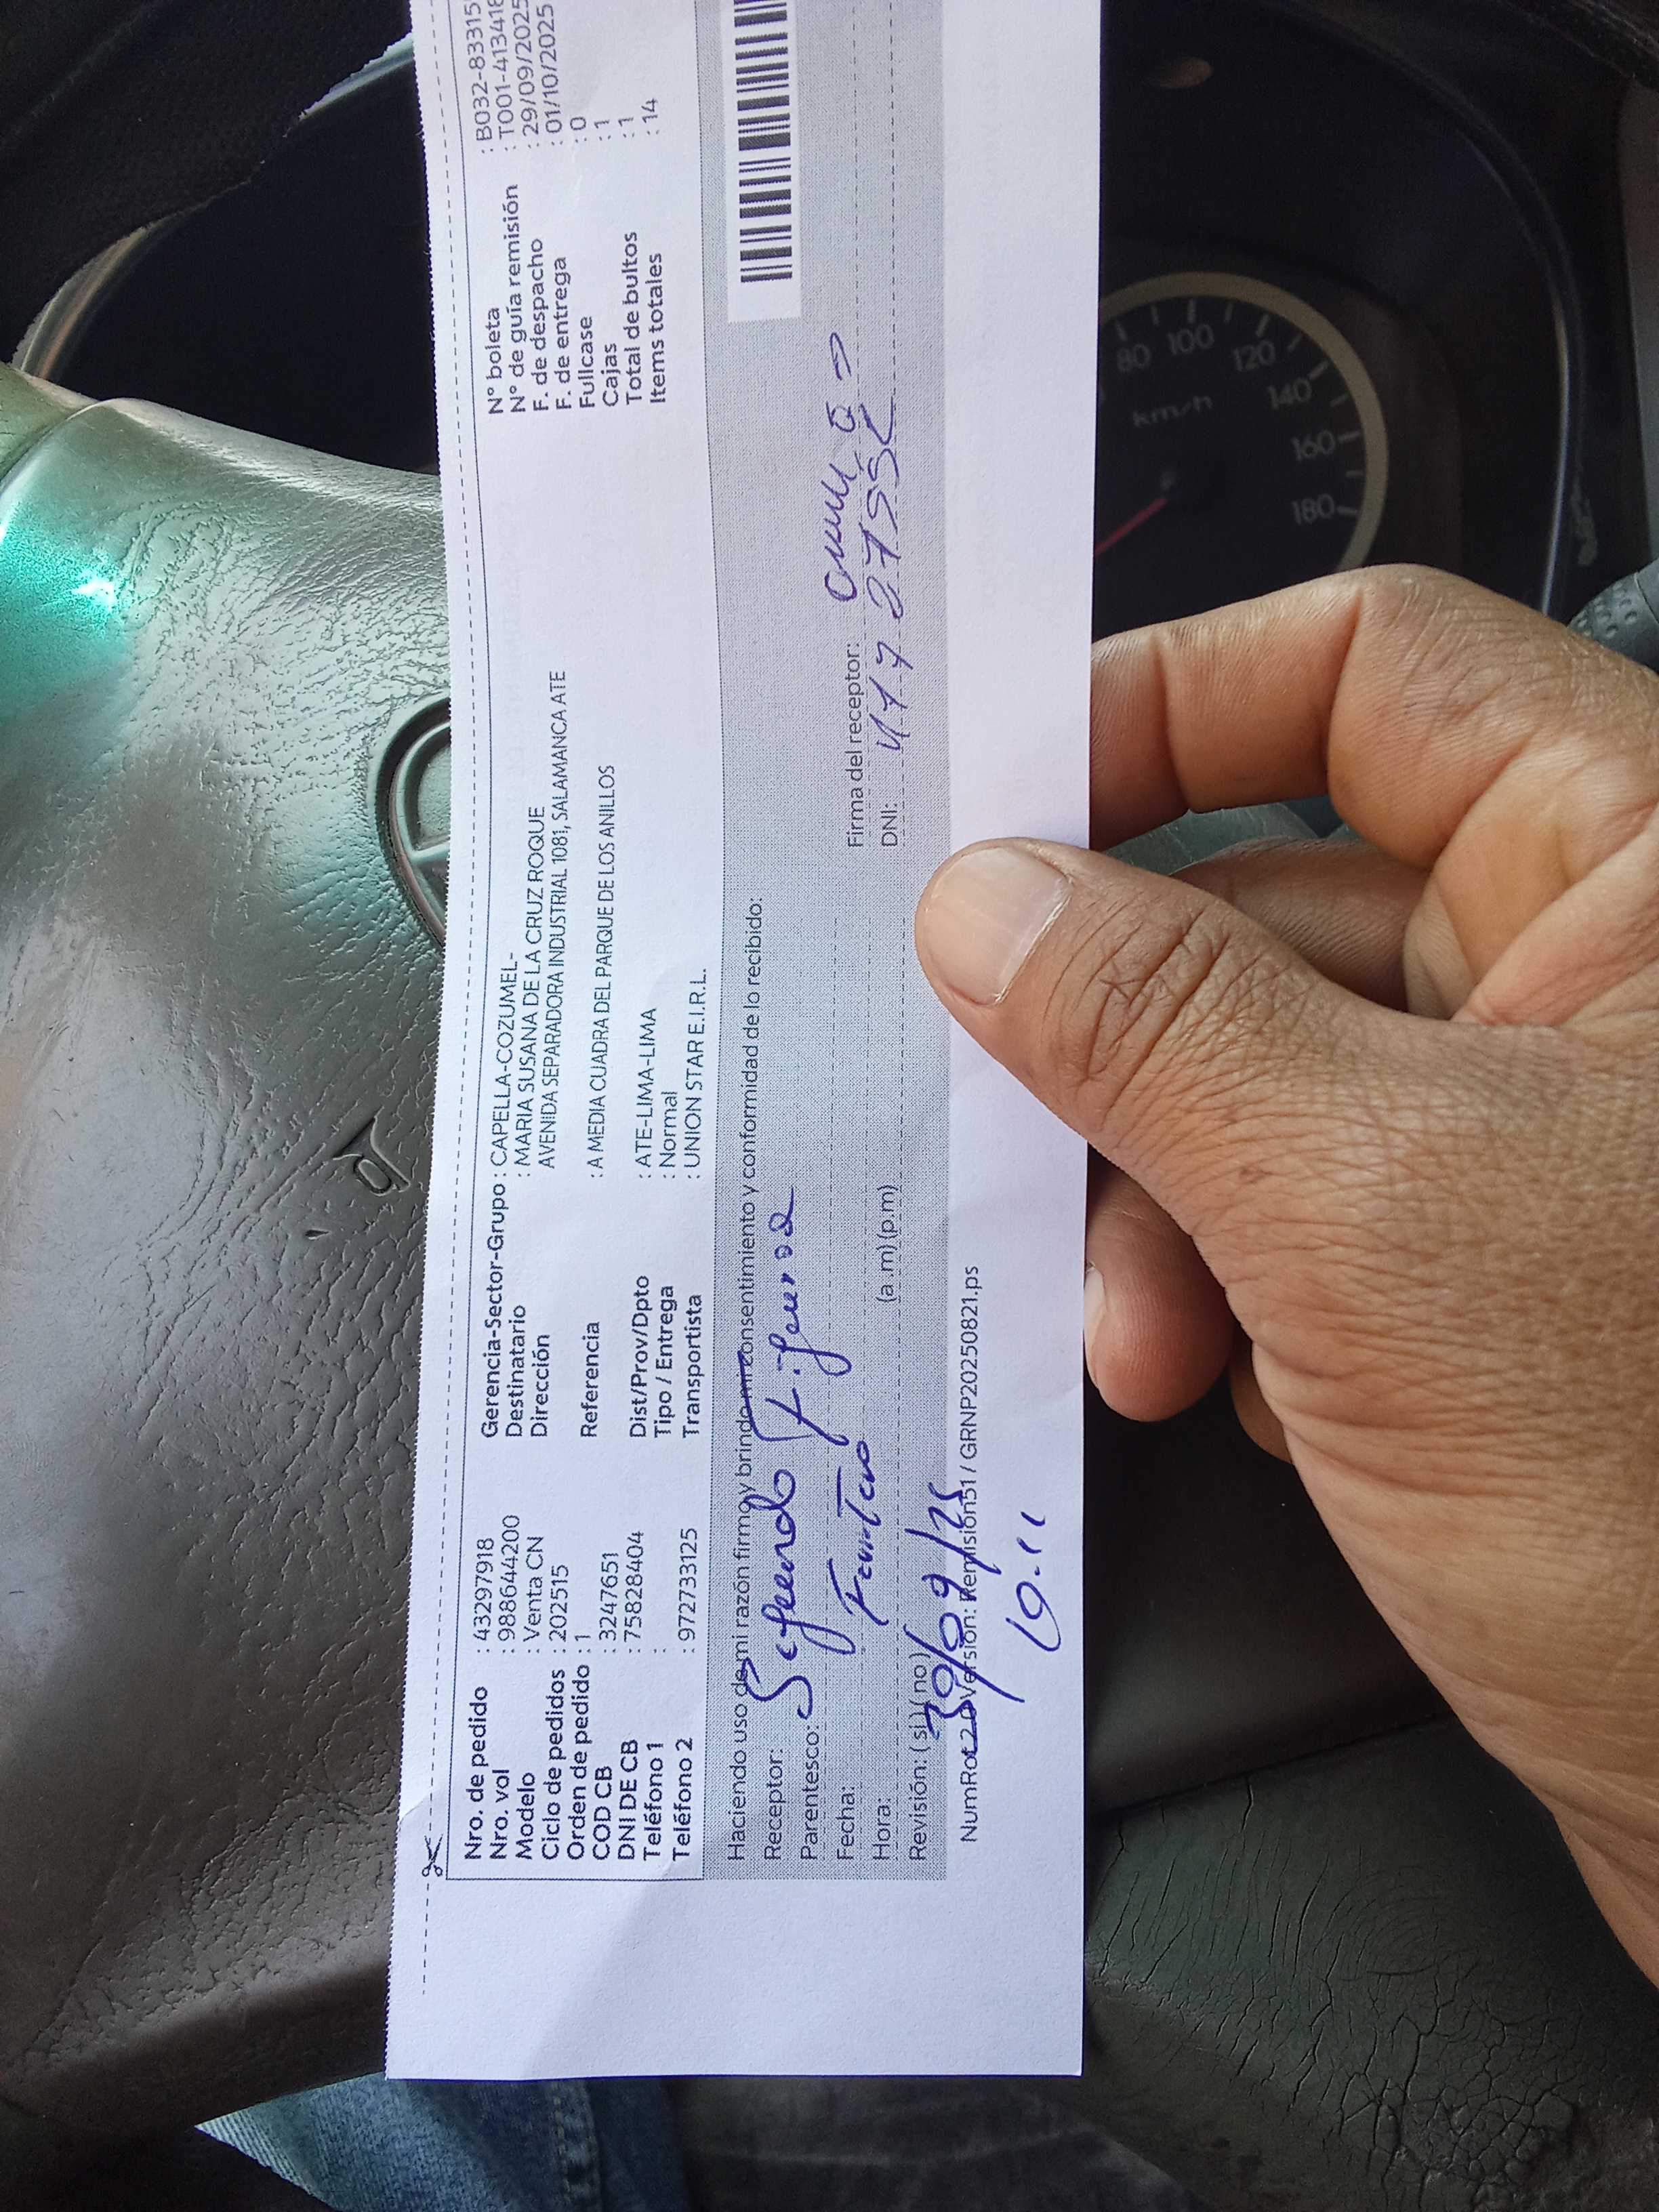 Nro. de pedido : 43297918 Gerencia-Sector-Grupo : CAPELLA-COZUMEL- N° boleta : B032-83315
Nro. vol : 988644200 Destinatario : MARIA SUSANA DE LA CRUZ ROQUE N° de guía remisión : T001-413418
Modelo : Venta CN Dirección AVENIDA SEPARADORA INDUSTRIAL 1081, SALAMANCA ATE F. de despacho : 29/09/2025
Ciclo de pedidos : 202515 F. de entrega : 01/10/2025
Orden de pedido : 1 Referencia : A MEDIA CUADRA DEL PARQUE DE LOS ANILLOS Fullcase : 0
COD CB : 3247651 Cajas : 1
DNI DE CB : 75828404 Dist/Prov/Dpto : ATE-LIMA-LIMA Total de bultos : 1
Teléfono 1 : Tipo / Entrega : Normal Items totales : 14
Teléfono 2 : 972733125 Transportista : UNION STAR E.I.R.L.
Haciendo uso de mi razón firmo y brindo mi consentimiento y conformidad de lo recibido:
Receptor:
Parentesco:
Fecha: Firma del receptor:
Hora: (a.m) (p.m) DNI:
Revisión: ( si ) ( no )
30/09/25
NumRot2.0 Versión: Remision51 / GRNP20250821.ps
80 100 120 140 160 180
km/h